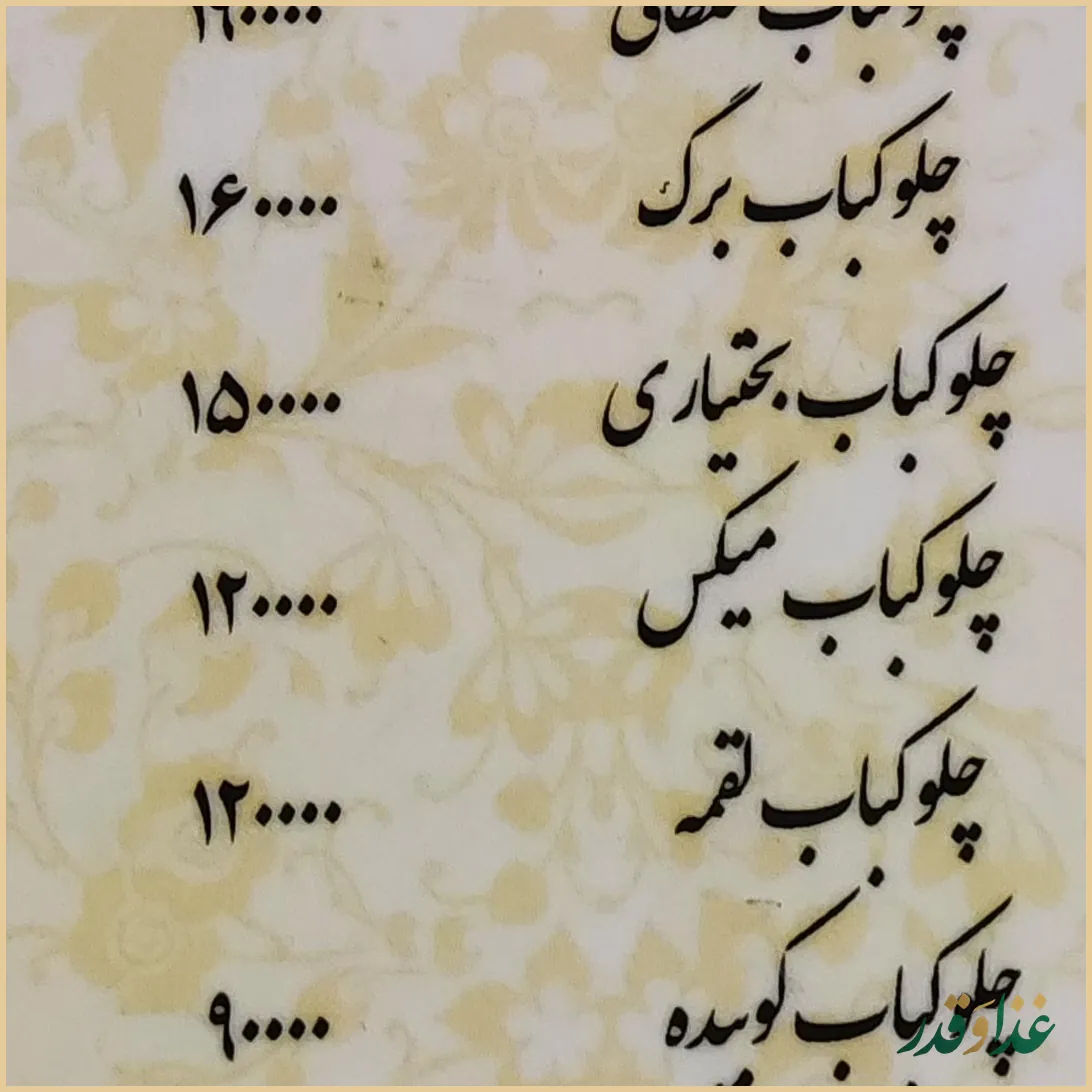 چلو کباب سلطانی ۱۹۰۰۰۰
چلو کباب برگ ۱۶۰۰۰۰
چلو کباب بختیاری ۱۵۰۰۰۰
چلو کباب میکس ۱۲۰۰۰۰
چلو کباب لقمه ۱۲۰۰۰۰
چلو کباب کوبیده ۹۰۰۰۰
غذا و قدر